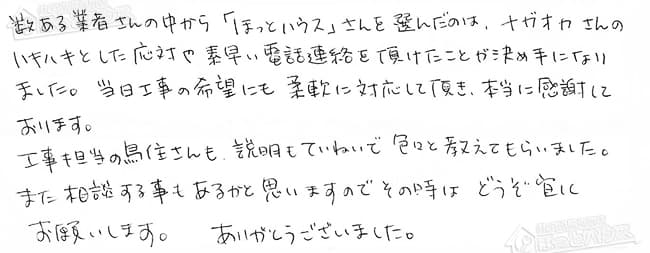 数ある業者さんの中から「ほっとハウス」さんを選んだのは、ナガオカさんの
ハキハキとした応対や素早い電話連絡を頂けたことが決め手になり
ました。当日工事の希望にも柔軟に対応して頂き、本当に感謝して
おります。
工事担当の鳥住さんも、説明もていねいで色々と教えてもらいました。
また相談する事もあるかと思いますのでその時はどうぞ宜しく
お願いします。 ありがとうございました。
ほっとハウス